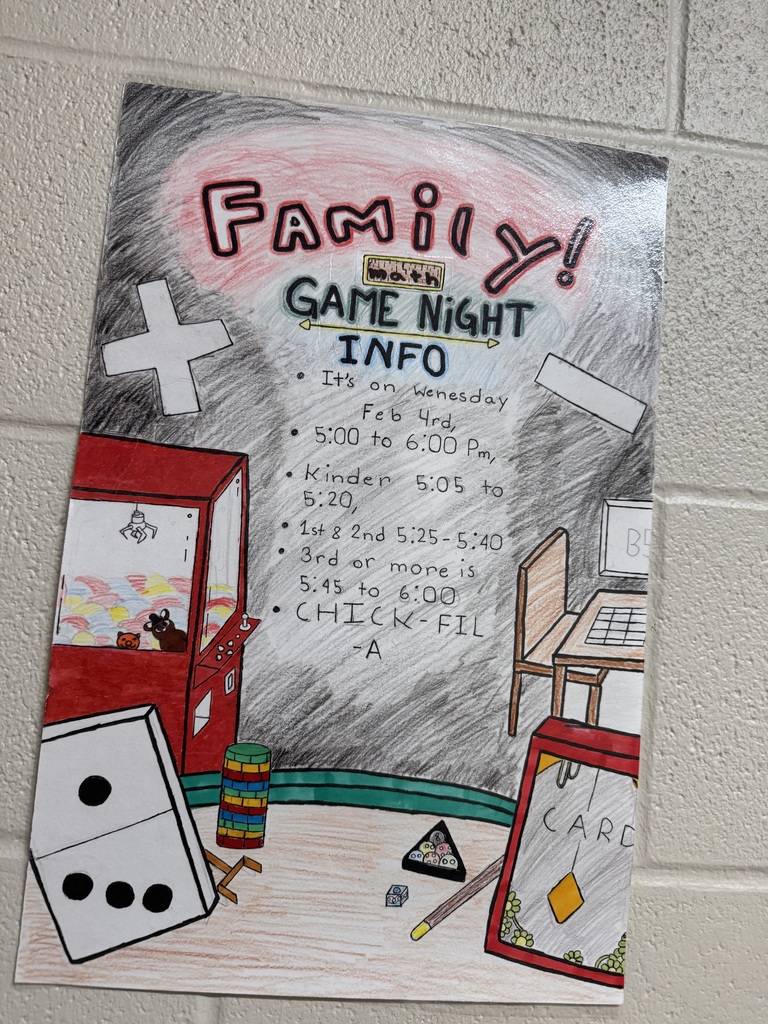 FAMily!
math
GAME NiGHT
INFO
• It's on Wenesday
Feb 4rd,
• 5:00 to 6:00 Pm,
• Kinder 5:05 to
5:20,
• 1st & 2nd 5:25-5:40
• 3rd or more is
5:45 to 6:00
• CHICK-FIL
-A
B5
CARD